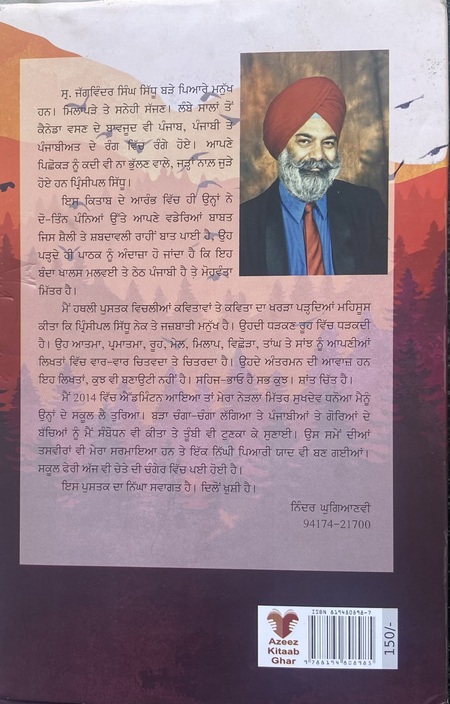 ਸ੍ਰ. ਜੱਗਵਿੰਦਰ ਸਿੰਘ ਸਿੱਧੂ ਬੜੇ ਪਿਆਰੇ ਮਨੁੱਖ
ਹਨ। ਮਿਲਾਪੜੇ ਤੇ ਸਨੇਹੀ ਸੱਜਣ। ਲੰਬੇ ਸਾਲਾਂ ਤੋਂ
ਕੈਨੇਡਾ ਵਸਣ ਦੇ ਬਾਵਜੂਦ ਵੀ ਪੰਜਾਬ, ਪੰਜਾਬੀ ਤੇ
ਪੰਜਾਬੀਅਤ ਦੇ ਰੰਗ ਵਿੱਚ ਰੰਗੇ ਹੋਏ। ਆਪਣੇ
ਪਿਛੋਕੜ ਨੂੰ ਕਦੀ ਵੀ ਨਾ ਭੁੱਲਣ ਵਾਲੇ, ਜੜ੍ਹਾਂ ਨਾਲ ਜੁੜੇ
ਹੋਏ ਹਨ ਪ੍ਰਿੰਸੀਪਲ ਸਿੱਧੂ।
ਇਸ ਕਿਤਾਬ ਦੇ ਆਰੰਭ ਵਿੱਚ ਹੀ ਉਨ੍ਹਾਂ ਨੇ
ਦੋ-ਤਿੰਨ ਪੰਨਿਆਂ ਉੱਤੇ ਆਪਣੇ ਵਡੇਰਿਆਂ ਬਾਬਤ
ਜਿਸ ਸ਼ੈਲੀ ਤੇ ਸ਼ਬਦਾਵਲੀ ਰਾਹੀਂ ਬਾਤ ਪਾਈ ਹੈ, ਉਹ
ਪੜ੍ਹਦੇ ਹੀ ਪਾਠਕ ਨੂੰ ਅੰਦਾਜ਼ਾ ਹੋ ਜਾਂਦਾ ਹੈ ਕਿ ਇਹ
ਬੰਦਾ ਖਾਲਸ ਮਲਵਈ ਤੇ ਠੇਠ ਪੰਜਾਬੀ ਹੈ ਤੇ ਮੋਹਵੰਡਾ
ਮਿੱਤਰ ਹੈ।
ਮੈਂ ਹਥਲੀ ਪੁਸਤਕ ਵਿਚਲੀਆਂ ਕਵਿਤਾਵਾਂ ਤੇ ਕਵਿਤਾ ਦਾ ਖਰੜਾ ਪੜ੍ਹਦਿਆਂ ਮਹਿਸੂਸ
ਕੀਤਾ ਕਿ ਪ੍ਰਿੰਸੀਪਲ ਸਿੱਧੂ ਨੇਕ ਤੇ ਜਜ਼ਬਾਤੀ ਮਨੁੱਖ ਹੈ। ਉਹਦੀ ਧੜਕਣ ਰੂਹ ਵਿੱਚ ਧੜਕਦੀ
ਹੈ। ਉਹ ਆਤਮਾ, ਪ੍ਰਮਾਤਮਾ, ਰੂਹ, ਮੇਲ, ਮਿਲਾਪ, ਵਿਛੋੜਾ, ਤਾਂਘ ਤੇ ਸਾਂਝ ਨੂੰ ਆਪਣੀਆਂ
ਲਿਖਤਾਂ ਵਿੱਚ ਵਾਰ-ਵਾਰ ਚਿਤਵਦਾ ਤੇ ਚਿਤਰਦਾ ਹੈ। ਉਹਦੇ ਅੰਤਰਮਨ ਦੀ ਆਵਾਜ਼ ਹਨ
ਇਹ ਲਿਖਤਾਂ, ਕੁਝ ਵੀ ਬਣਾਉਟੀ ਨਹੀਂ ਹੈ। ਸਹਿਜ-ਭਾਓ ਹੈ ਸਭ ਕੁਝ। ਸ਼ਾਂਤ ਚਿੱਤ ਹੈ।
ਮੈਂ 2014 ਵਿੱਚ ਐਡਮਿੰਟਨ ਆਇਆ ਤਾਂ ਮੇਰਾ ਨੇੜਲਾ ਮਿੱਤਰ ਸੁਖਦੇਵ ਧਨੋਆ ਮੈਨੂੰ
ਉਨ੍ਹਾਂ ਦੇ ਸਕੂਲ ਲੈ ਤੁਰਿਆ। ਬੜਾ ਚੰਗਾ-ਚੰਗਾ ਲੱਗਿਆ ਤੇ ਪੰਜਾਬੀਆਂ ਤੇ ਗੋਰਿਆਂ ਦੇ
ਬੱਚਿਆਂ ਨੂੰ ਮੈਂ ਸੰਬੋਧਨ ਵੀ ਕੀਤਾ ਤੇ ਤੂੰਬੀ ਵੀ ਟੁਣਕਾ ਕੇ ਸੁਣਾਈ। ਉਸ ਸਮੇਂ ਦੀਆਂ
ਤਸਵੀਰਾਂ ਵੀ ਮੇਰਾ ਸਰਮਾਇਆ ਹਨ ਤੇ ਇੱਕ ਨਿੱਘੀ ਪਿਆਰੀ ਯਾਦ ਵੀ ਬਣ ਗਈਆਂ।
ਸਕੂਲ ਫੇਰੀ ਅੱਜ ਵੀ ਚੇਤੇ ਦੀ ਚੰਗੇਰ ਵਿੱਚ ਪਈ ਹੋਈ ਹੈ।
ਇਸ ਪੁਸਤਕ ਦਾ ਨਿੱਘਾ ਸਵਾਗਤ ਹੈ। ਦਿਲੋਂ ਖੁਸ਼ੀ ਹੈ।
ਨਿੰਦਰ ਘੁਗਿਆਣਵੀ
94174-21700
ISBN 819480898-7
Azeez
Kitaab
Ghar
150/-